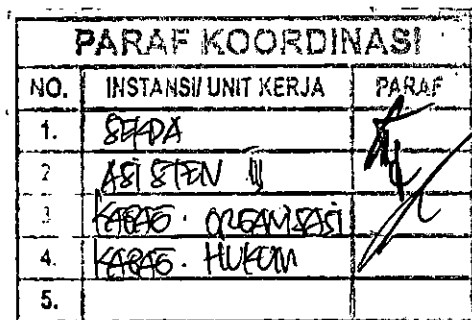 PARAF KOORDINASI
NO. INSTANSI/ UNIT KERJA PARAF
1. SEKDA
2 ASISTEN III
3 KABAG. ORGANISASI
4. KABAG. HUKUM
5.